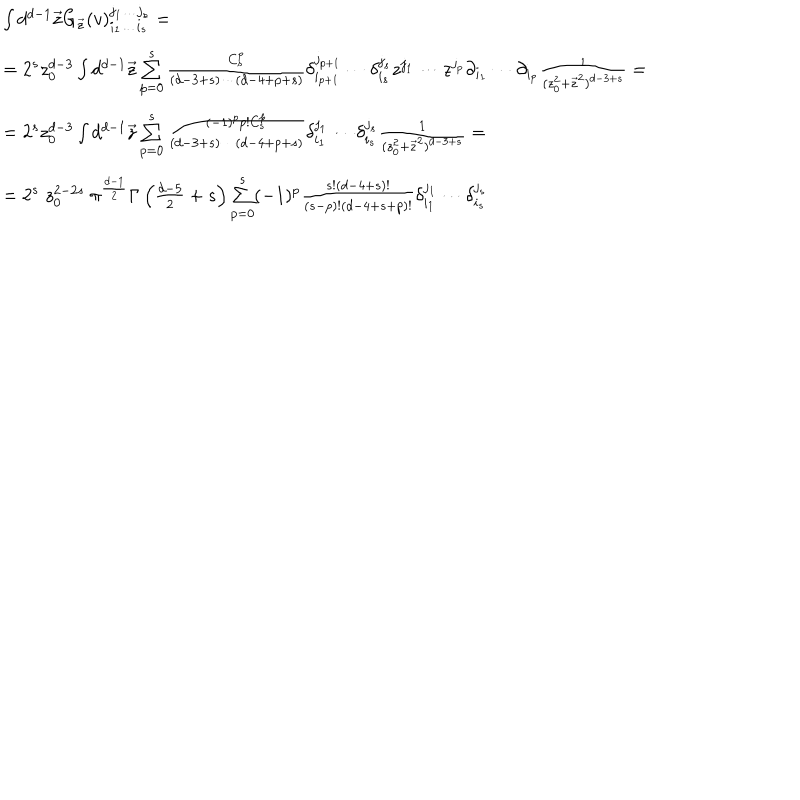 ∫ d^{d-1}\vec{z} G_{\vec{z}}(v)^{j_1…j_s}_{i_1…i_s} =
= 2^s z_0^{d-3} ∫ d^{d-1}\vec{z} \sum_{p=0}^{s} \frac{C_s^p}{(d-3+s)⋯(d-4+p+s)} δ^{j_{p+1}}_{i_{p+1}} ⋯ δ^{j_s}_{i_s} z^{j_1} ⋯ z^{j_p} ∂_{i_1} ⋯ ∂_{i_p} \frac{1}{(z_0^2+\vec{z}^2)^{d-3+s}} =
= 2^s z_0^{d-3} ∫ d^{d-1}\vec{z} \sum_{p=0}^{s} \frac{(-1)^p p! C_s^p}{(d-3+s)⋯(d-4+p+s)} δ^{j_1}_{i_1} ⋯ δ^{j_s}_{i_s} \frac{1}{(z_0^2+\vec{z}^2)^{d-3+s}} =
= 2^s z_0^{2-2s} π^{\frac{d-1}{2}} Γ(\frac{d-5}{2} + s) \sum_{p=0}^{s} (-1)^p \frac{s!(d-4+s)!}{(s-p)!(d-4+s+p)!} δ^{j_1}_{i_1} ⋯ δ^{j_s}_{i_s}